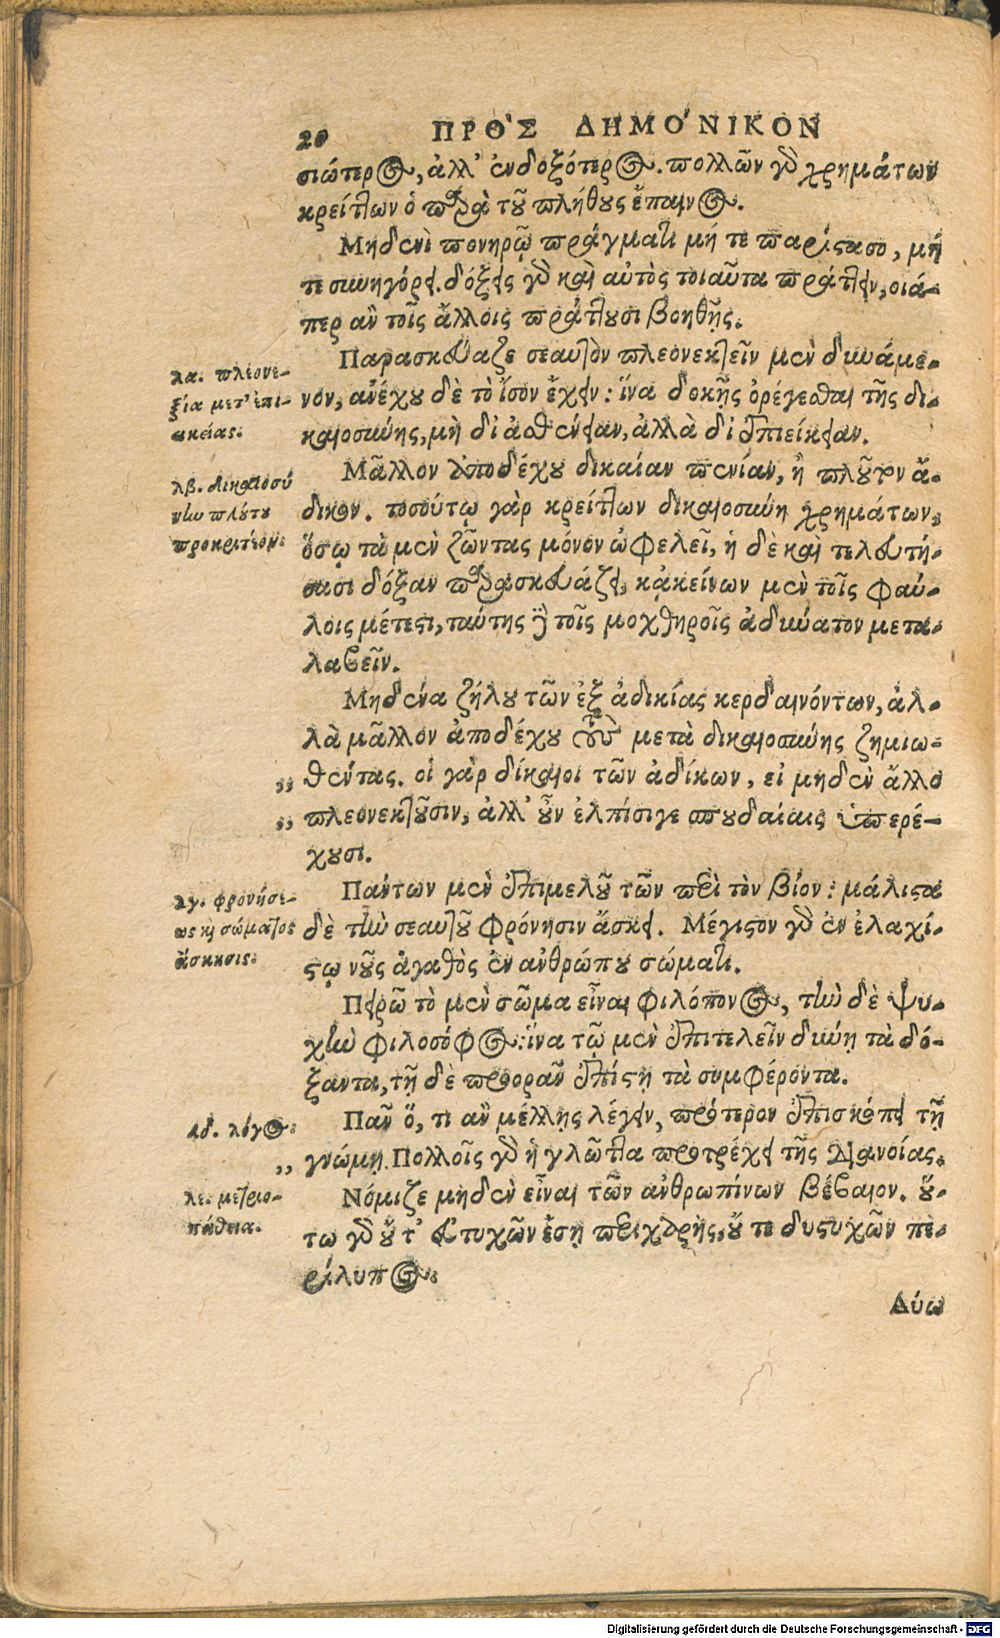 20 ΠΡΟ`Σ ΔΗΜΟ´ΝΙΚΟΝ
σιώτερος, ἀλλ’ ἐνδοξότερος. πολλῶν γὰρ χρημάτων
κρείττων ὁ παρὰ τοῦ πλήθους ἔπαινος.
Μηδενὶ πονηρῷ πράγματι μή τε παρίστασο, μή
τε συνηγόρει. δόξεις γὰρ καὶ αὐτὸς τοιαῦτα πράττειν, οἱά-
περ ἂν τοῖς ἄλλοις πράττουσι βοηθῇς.
Παρασκεύαζε σεαυτὸν πλεονεκτεῖν μὲν δυνάμε-
νον, ἀνέχου δὲ τὸ ἴσον ἔχειν: ἵνα δοκῇς ὀρέγεσθαι τῆς δι-
καιοσύνης, μὴ δι’ ἀσθένειαν, ἀλλὰ δι’ ἐπιείκειαν.
λα. πλεονε-
ξία μετ’ ἐπι-
εικείας.
Μᾶλλον ἀποδέχου δικαίαν πενίαν, ἢ πλοῦτον ἄ-
δικον. τοσούτῳ γὰρ κρείττων δικαιοσύνη χρημάτων,
ὅσῳ τὰ μὲν ζῶντας μόνον ὠφελεῖ, ἡ δὲ καὶ τελευτή-
σασι δόξαν παρασκευάζει, κἀκείνων μὲν τοῖς φαύ-
λοις μέτεστι, ταύτης δὲ τοῖς μοχθηροῖς ἀδύνατον μετα-
λαβεῖν.
λβ. δικαιοσύ
νην πλούτου
προκριτέον.
Μηδένα ζήλου τῶν ἐξ ἀδικίας κερδαινόντων, ἀλ-
λὰ μᾶλλον ἀποδέχου τοὺς μετὰ δικαιοσύνης ζημιω-
,, θέντας. οἱ γὰρ δίκαιοι τῶν ἀδίκων, εἰ μηδὲν ἄλλο
,, πλεονεκτοῦσιν, ἀλλ’ οὖν ἐλπίσι γε σπουδαίαις ὑπερέ-
χουσι.
Πάντων μὲν ἐπιμελοῦ τῶν περὶ τὸν βίον: μάλιστα
δὲ τὴν σεαυτοῦ φρόνησιν ἄσκει. Μέγιστον γὰρ ἐν ἐλαχί-
στῳ νοῦς ἀγαθὸς ἐν ἀνθρώπου σώματι.
λγ. φρονήσε-
ως καὶ σώματος
ἄσκησις.
Πειρῶ τὸ μὲν σῶμα εἶναι φιλόπονος, τὴν δὲ ψυ-
χὴν φιλόσοφος: ἵνα τῷ μὲν ἐπιτελεῖν δύνῃ τὰ δό-
ξαντα, τῇ δὲ προορᾶν ἐπίστῃ τὰ συμφέροντα.
Πᾶν ὅ, τι ἂν μέλλῃς λέγειν, πρότερον ἐπισκόπει τῇ
,, γνώμῃ. Πολλοῖς γὰρ ἡ γλῶττα προτρέχει τῆς διανοίας.
λδ. λόγος.
Νόμιζε μηδὲν εἶναι τῶν ἀνθρωπίνων βέβαιον. οὕ-
τω γὰρ οὔτ’ εὐτυχῶν ἔσῃ περιχαρὴς, οὔ τε δυστυχῶν πε-
ρίλυπος.
λε. μετριο-
πάθεια.
Δύω
Digitalisierung gefördert durch die Deutsche Forschungsgemeinschaft - DFG